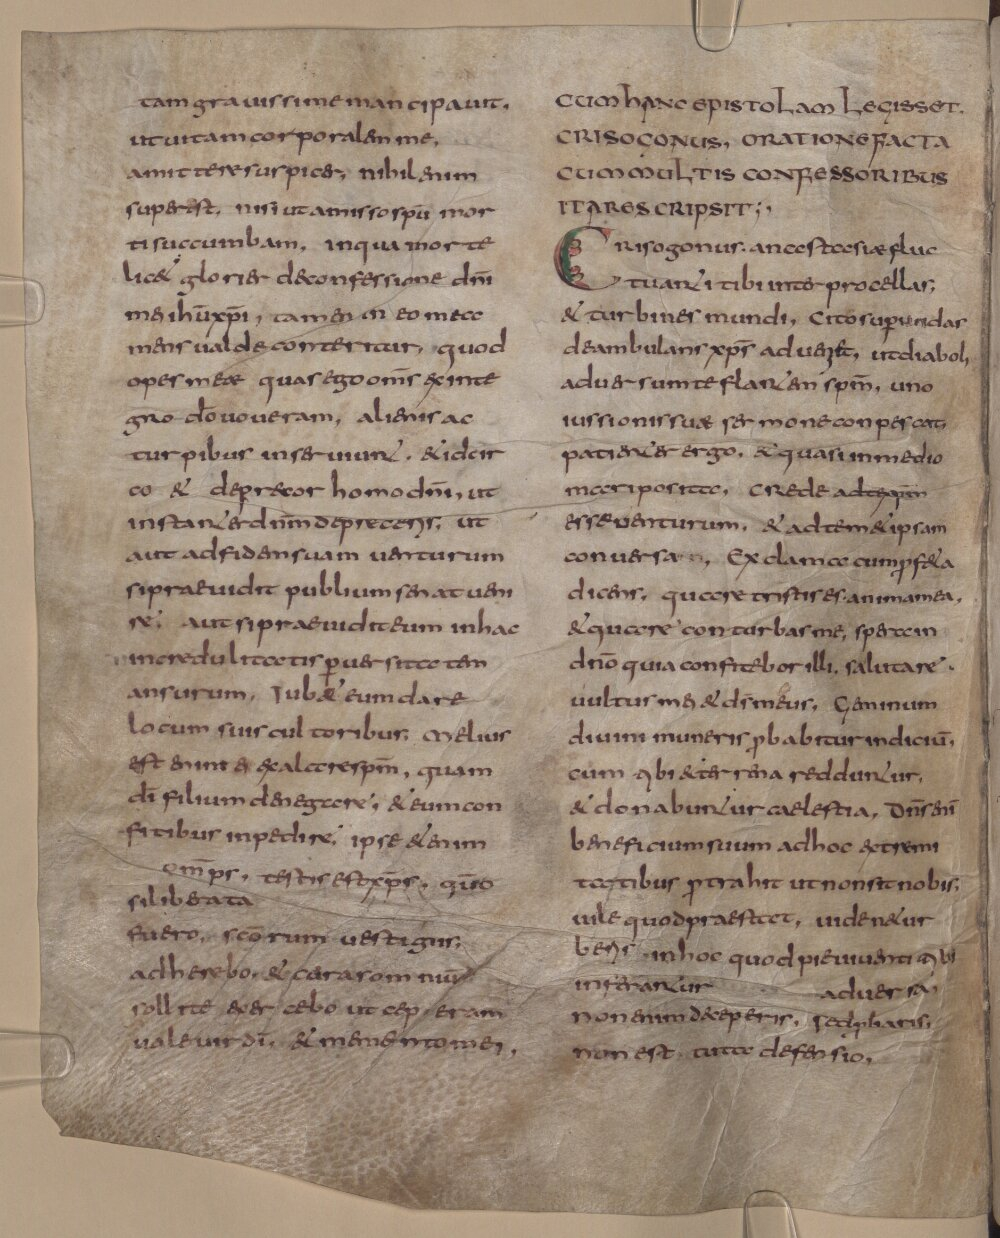 tam gravissime mancipavit,
ut vitam corporalem me,
amittere suspicer, nihil enim
superest, nisi ut amisso spu mor
ti succumbam, in qua morte
licet glorier de confessione dni
mei ihu xpi, tamen in eo mea
mens valde conteritur, quod
opes meae quas ego oms ex inte
gro do voveram, alienis ac
turpibus inserviunt, et idcir
co et deprecor homo dni, ut
instanter dnm depreceris, ut
aut ad fidem suam venturum
si praevidit publium senat veni
re; aut si praevidit eum in hac
incredulitatis perversitate m
ansurum, Iubet eum dare
locum suis cultoribus; Melius
est enim ei exalare spm, quam
di filium denegare; et eum con
fitibus inpedire; ipse etenim
omps, testis est xps, quo
si liberata
fuero, scorum vestigiis;
adherebo, et curarum
sollite exercebo ut ceperam
vale vir di, et memento mei,
CUM HANC EPISTOLAM LEGISSET
CRISOGONUS, ORATIONE FACTA
CUM MULTIS CONFESSORIBUS
ITA RESCRIPSIT;,
Crisogonus. anastasiae fluc
tuanti tibi inter procellas;
et turbines mundi, Cito sup undas
deambulans xps adveniet, ut diabol,
adversum te flantem spm, uno
iussionis suae sermone conpescat;
patienter ergo, et quasi in medio
mari posita, Crede ad te xpm
esse venturum, et ad temet ipsam
conversa, Exclama cum pfeta
dicens, quare tristis es anima mea,
et quare conturbas me, spera in
dno quia confitebor illi, salutare
vultus mei et ds meus, Geminum
divini muneris pbabitur indiciu,
cum tibi et terrena redduntur,
et donabuntur caelestia, Dns eni
beneficium suum ad hoc extremi
tatibus ptrahit ut non sit nobis;
vile quod praestat, videntur
in hoc quod pie viventi tibi
inferantur adversa
non enim deceperis, sed pbaris;
non est tuta defensio,